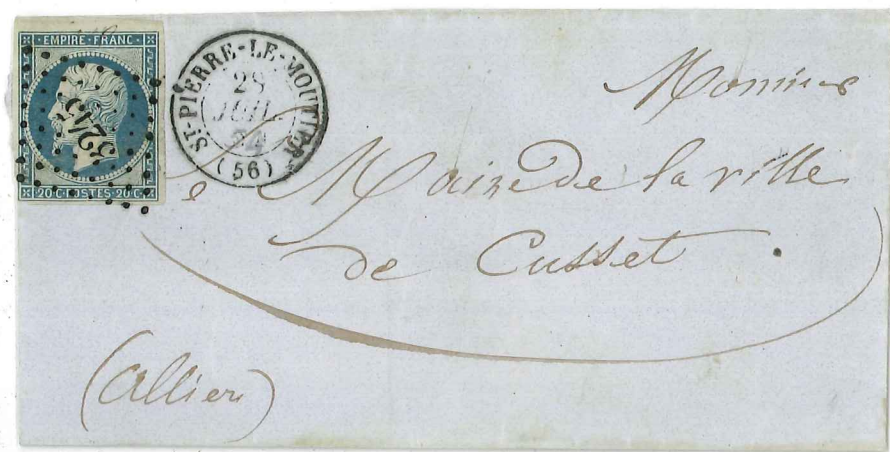 EMPIRE FRANC
20 C POSTES 20 C
3245
ST-PIERRE-LE-MOUTIER
28
JUIL.
54
(56)
Monsieur
le Maire de la ville
de Cusset.
(Allier)